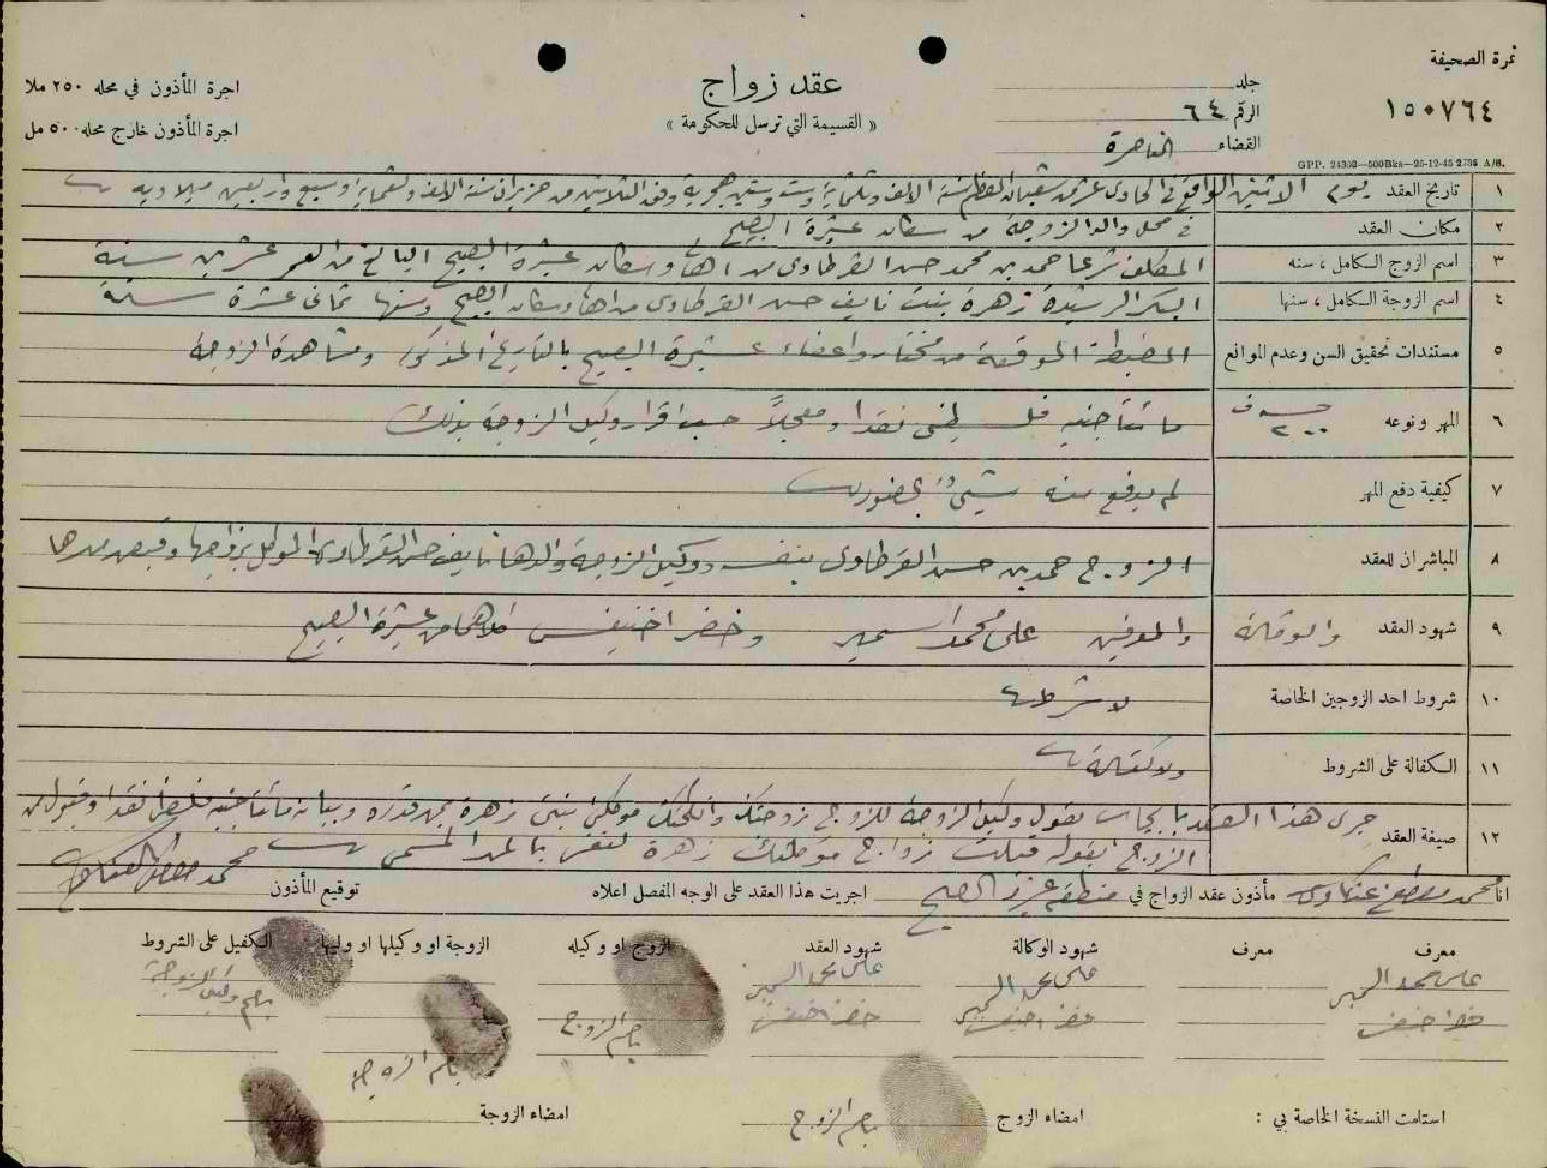 نمرة الصحيفة
١٥٠٧٦٤
جلد
الرقم ٦٤
القضاء الناصرة
عقد زواج
« القسيمة التي ترسل للحكومة »
اجرة المأذون في محله ٢٥٠ ملا
اجرة المأذون خارج محله ٥٠٠ مل
GPP. 24303—500Bks—26-12-45 2786 A/B.
١ تاريخ العقد يوم الاثنين الواقع في الحادي عشر من شعبان المعظم سنة الالف وثلثماية وست وستين هجرية وفق الثلاثين من حزيران سنة الالف وتسعماية وسبع واربعين ميلاديه
٢ مكان العقد في محل والد الزوجة من سكان عشيرة الصبيح
٣ اسم الزوج الكامل ، سنه المكلف شرعا حمد بن محمد حسن القرطاوي من اهالي وسكان عشيرة الصبيح البالغ من العمر عشرين سنة
٤ اسم الزوجة الكامل ، سنها البكر الرشيدة زهرة بنت نايف حسن القرطاوي من اهالي وسكان الصبيح وسنها ثماني عشرة سنة
٥ مستندات تحقيق السن وعدم الموانع المضبطة الموقعة من مختار واعضاء عشيرة الصبيح بالتاريخ المذكور ومشاهدة الزوجة
٦ المهر ونوعه ٢٠٠ مائتا جنيه فلسطيني نقدا ومعجلاً حسب اقرار وكيل الزوجة بذلك
٧ كيفية دفع المهر لم يدفع منه شيئ بحضورنا
٨ المباشران للعقد الزوج حمد بن حسن القرطاوي بنفسه ووكيل الزوجة والدها نايف حسن القرطاوي الموكل بزواجها وقبض مهرها
٩ شهود العقد والوكالة والمعرفين علي محمد السمير وخضر اخنيفس كلاهما من عشيرة الصبيح
١٠ شروط احد الزوجين الخاصة لا شرط
١١ الكفالة على الشروط ولا كفالة
١٢ صيغة العقد جرى هذا العقد بايجاب بقول وكيل الزوجة للزوج زوجتك وانكحتك موكلتي بنتي زهرة بمهر قدره وبيانه مائتا جنيه فلسطيني نقدا وقبول من
الزوج بقوله قبلت زواج موكلتك زهرة لنفسي بالمهر المسمى
انا محمد مصطفى مأذون عقد الزواج في منطقة الصبيح اجريت هذا العقد على الوجه المفصل اعلاه توقيع المأذون محمد مصطفى
معرف معرف شهود الوكالة شهود العقد الزوج او وكيله الزوجة او وكيلها او وليها الكفيل على الشروط
علي محمد السمير علي محمد السمير علي محمد السمير بصم وكيل الزوجة
خضر اخنيفس خضر اخنيفس خضر اخنيفس بصم الزوج
بصم الزوجة
استلمت النسخة الخاصة بي : امضاء الزوج بصم الزوج امضاء الزوجة